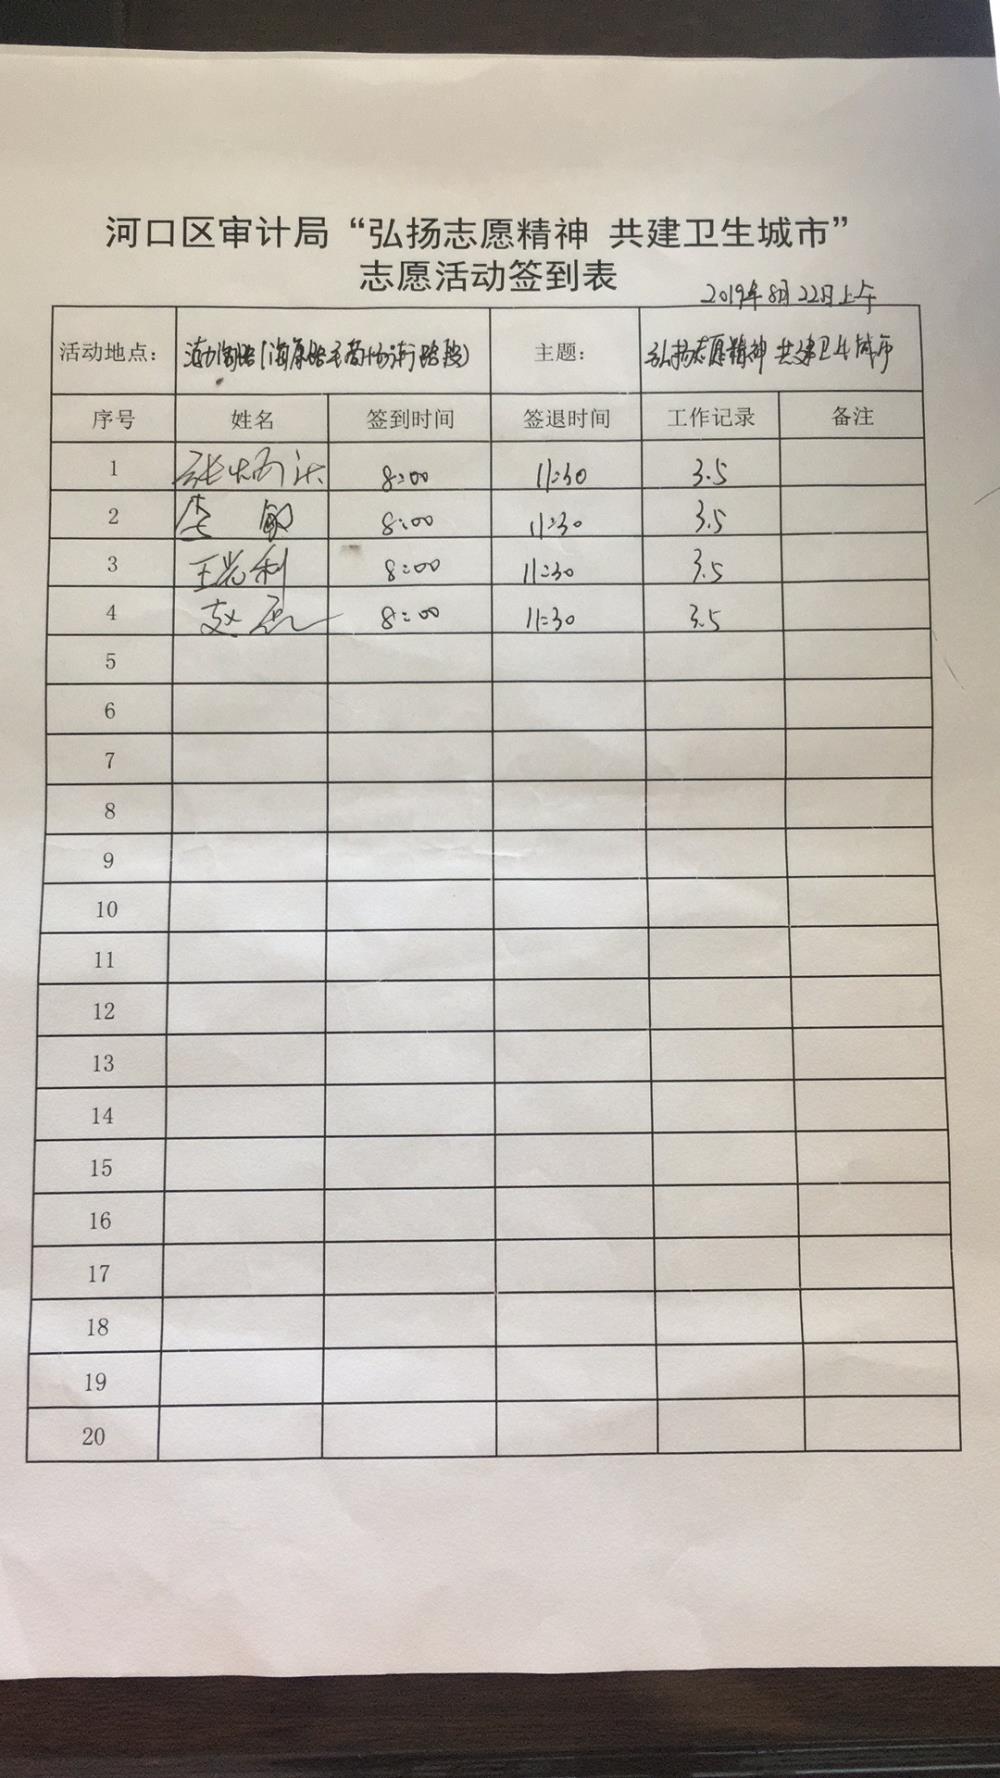 河口区审计局“弘扬志愿精神 共建卫生城市”
志愿活动签到表
2019年8月22日上午
活动地点： 主题： 弘扬志愿精神 共建卫生城市
序号 姓名 签到时间 签退时间 工作记录 备注
1 8:00 11:30 3.5
2 李敏 8:00 11:30 3.5
3 8:00 11:30 3.5
4 赵磊 8:00 11:30 3.5
5
6
7
8
9
10
11
12
13
14
15
16
17
18
19
20